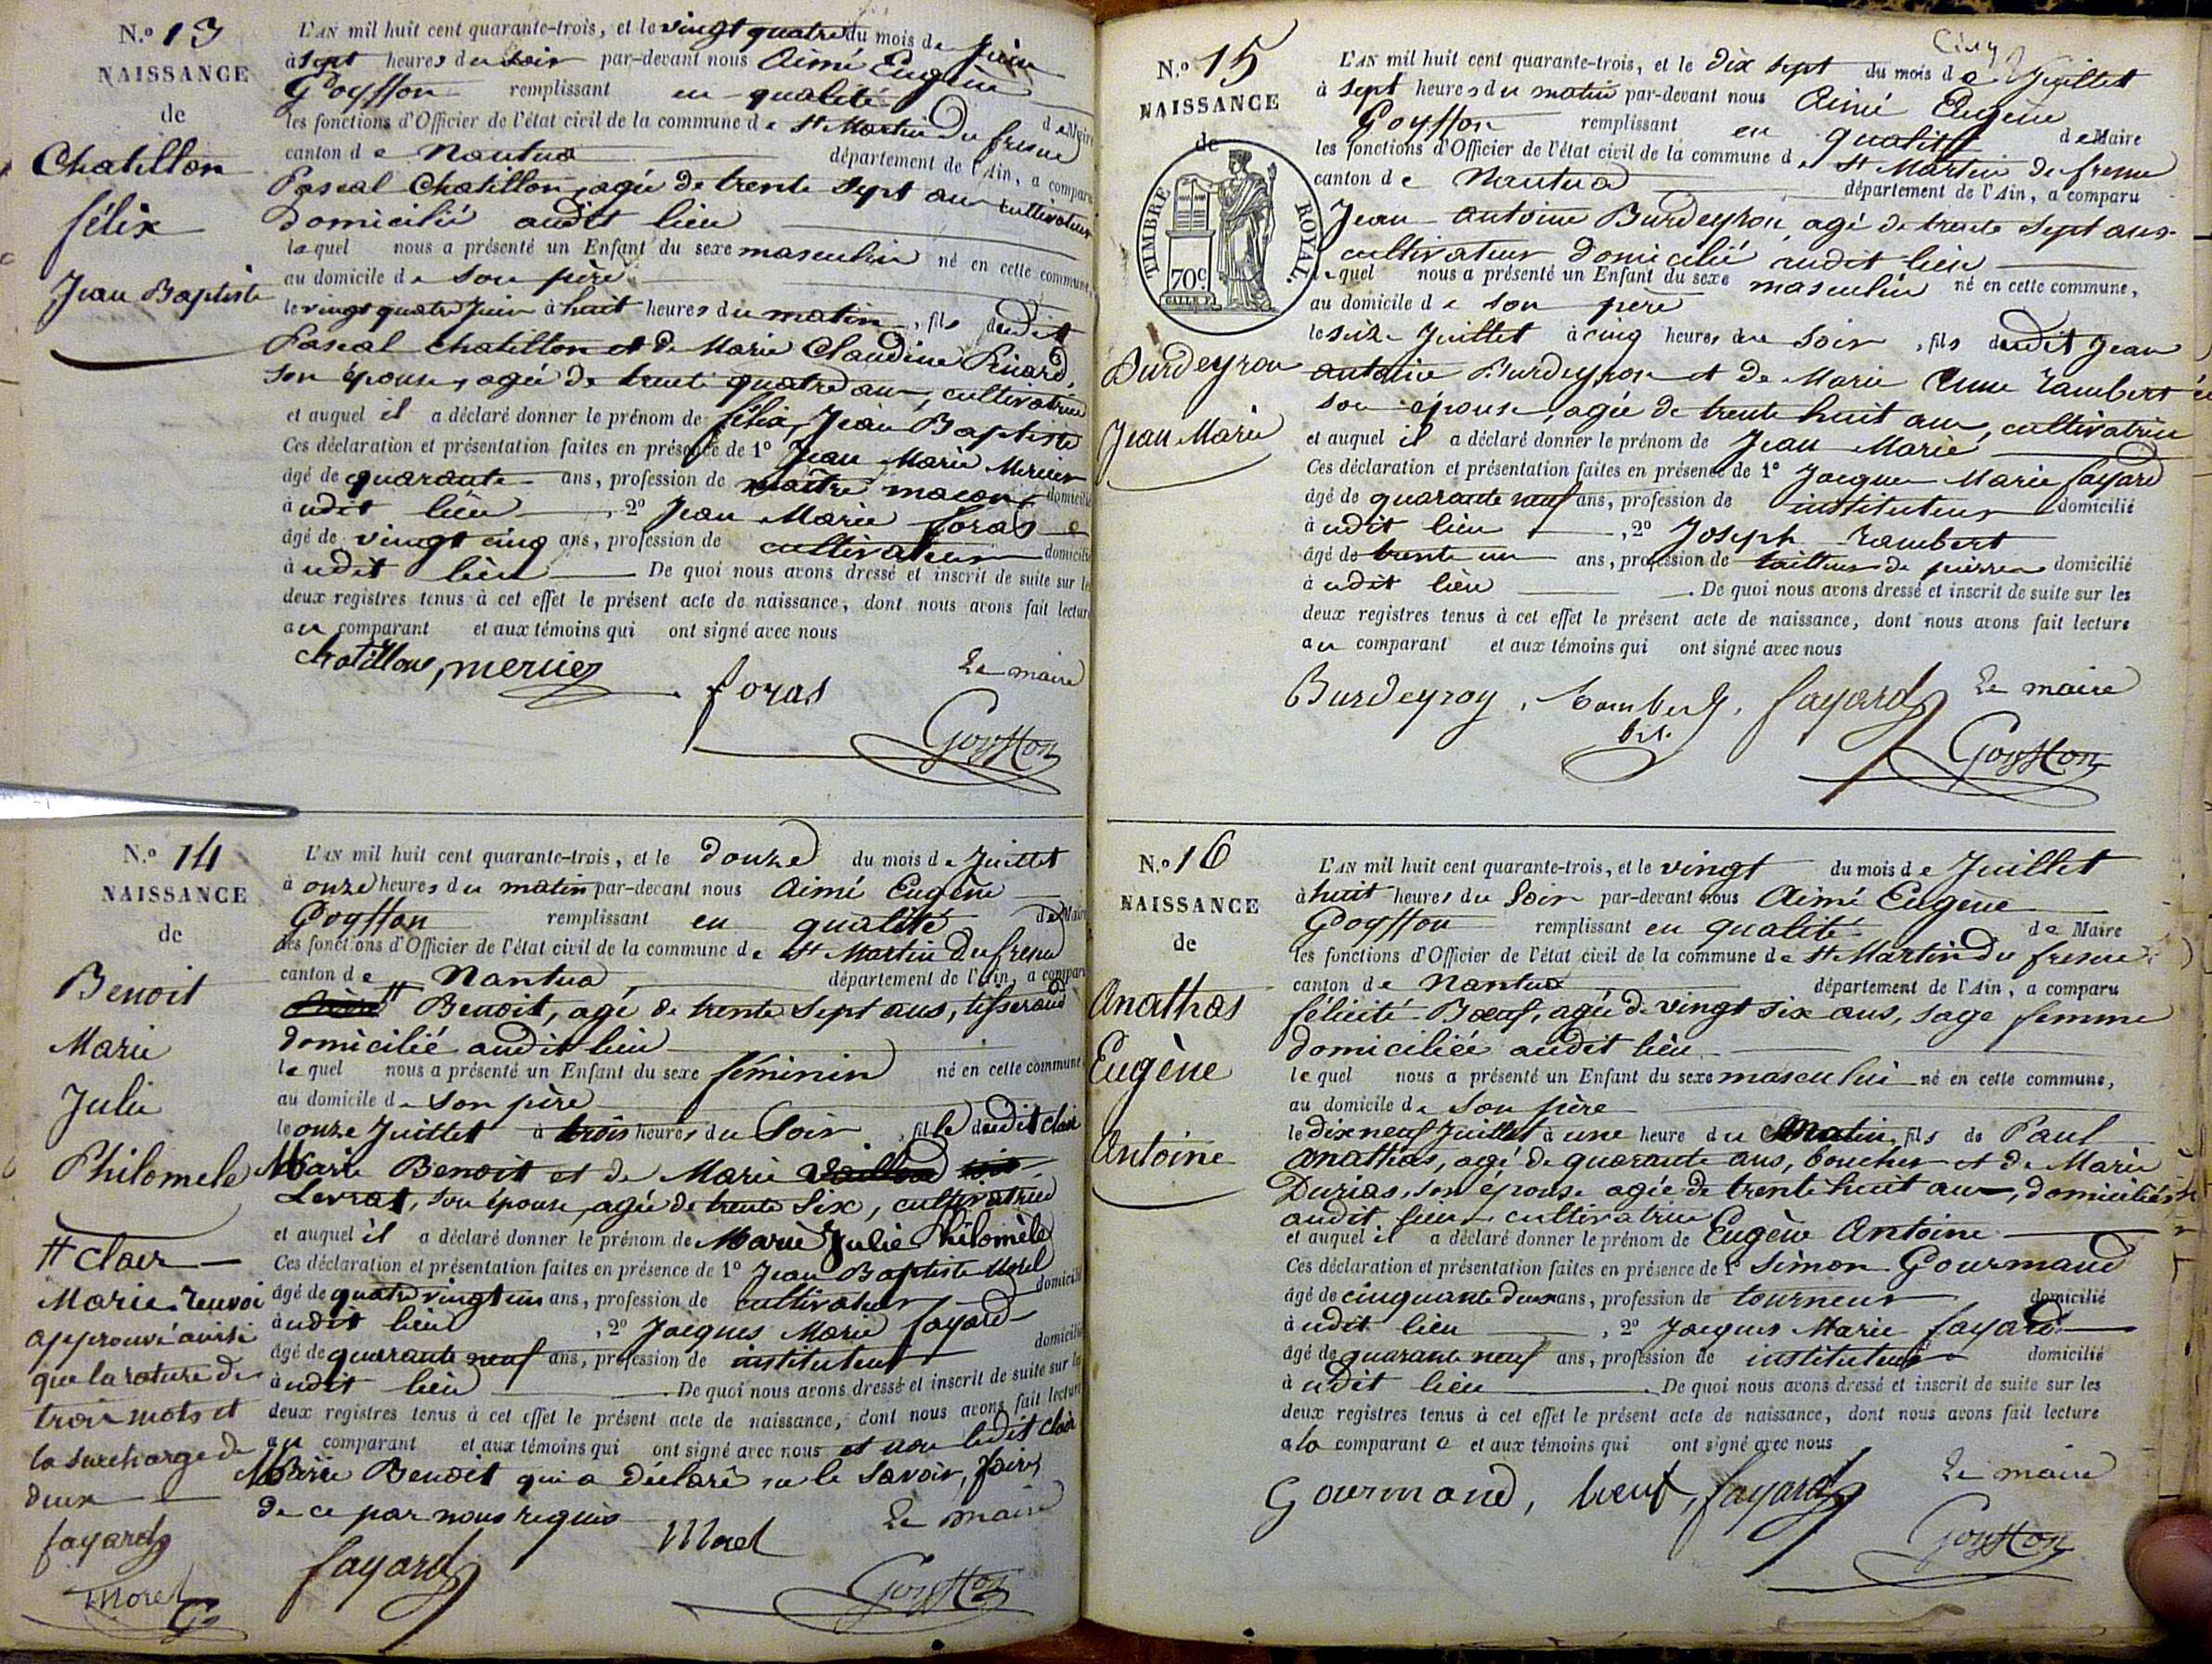 N.º 13
NAISSANCE
de
Chatillon
félix
Jean Baptiste
L'AN mil huit cent quarante-trois, et le vingt quatre du mois de Juin
à sept heures du soir par-devant nous Aimé Eugène
Goyffon remplissant en qualité de Maire
les fonctions d'Officier de l'état civil de la commune de St Martin du fresne
canton de Nantua département de l'Ain, a comparu
Pascal Chatillon, agée de trente sept ans cultivateur
domicilié audit lieu
lequel nous a présenté un Enfant du sexe masculin né en cette commune,
au domicile de son père
le vingt quatre Juin à huit heures du matin, fils dudit
Pascal chatillon et de Marie Claudine Pinard,
son épouse, agée de trente quatre ans, cultivatrice
et auquel il a déclaré donner le prénom de félix, Jean Baptiste
Ces déclaration et présentation faites en présence de 1º Jean Marie Mercier
âgé de quarante ans, profession de maître maçon domicilié
à udit lieu, 2º Jean Marie foras
âgé de vingt cinq ans, profession de cultivateur domicilié
à udit lieu De quoi nous avons dressé et inscrit de suite sur les
deux registres tenus à cet effet le présent acte de naissance, dont nous avons fait lecture
au comparant et aux témoins qui ont signé avec nous
chatillon, mercier foras Le maire
Goyffon
N.º 14
NAISSANCE
de
Benoit
Marie
Julie
Philomele
# Clair
Marie. renvoi
approuvé ainsi
que la rature de
trois mots et
la surcharge de
deux
fayard
morel
G
L'AN mil huit cent quarante-trois, et le douze du mois de Juillet
à onze heures du matin par-devant nous Aimé Eugène
Goyffon remplissant en qualité de Maire
les fonctions d'Officier de l'état civil de la commune de St Martin du fresne
canton de Nantua, département de l'Ain, a comparu
# Benoit, agé de trente sept ans, tisserand
domicilié audit lieu
lequel nous a présenté un Enfant du sexe féminin né en cette commune,
au domicile de son père
le onze Juillet à trois heures du soir, fille dudit clair
Marie Benoit et de Marie
Levrat, son épouse, agée de trente six, cultivatrice
et auquel il a déclaré donner le prénom de Marie Julie Philomèle
Ces déclaration et présentation faites en présence de 1º Jean Baptiste Morel
âgé de quatre vingt un ans, profession de cultivateur domicilié
à udit lieu, 2º Jacques Marie fayard
âgé de quarante neuf ans, profession de instituteur domicilié
à udit lieu. De quoi nous avons dressé et inscrit de suite sur les
deux registres tenus à cet effet le présent acte de naissance, dont nous avons fait lecture
au comparant et aux témoins qui ont signé avec nous et non ledit clair
Marie Benoit qui a déclaré ne le savoir, faire
de ce par nous requis
fayard morel Le maire
Goyffon
Cinq
N.º 15
NAISSANCE
de
TIMBRE ROYAL
70c
Burdeyron
Jean Marie
L'AN mil huit cent quarante-trois, et le dix sept du mois de Juillet
à sept heures du matin par-devant nous Aimé Eugène
Goyffon remplissant en qualité de Maire
les fonctions d'Officier de l'état civil de la commune de St Martin du fresne
canton de Nantua département de l'Ain, a comparu
Jean Antoine Burdeyron, agé de trente sept ans
cultivateur domicilié audit lieu
lequel nous a présenté un Enfant du sexe masculin né en cette commune,
au domicile de son père
le seize Juillet à cinq heures du soir, fils dudit Jean
antoine Burdeyron et de Marie Anne Rambert
son épouse, agée de trente huit ans, cultivatrice
et auquel il a déclaré donner le prénom de Jean Marie
Ces déclaration et présentation faites en présence de 1º Jacques Marie fayard
âgé de quarante neuf ans, profession de instituteur domicilié
à udit lieu, 2º Joseph Rambert
âgé de trente un ans, profession de tailleur de pierres domicilié
à udit lieu. De quoi nous avons dressé et inscrit de suite sur les
deux registres tenus à cet effet le présent acte de naissance, dont nous avons fait lecture
au comparant et aux témoins qui ont signé avec nous
Burdeyron, Rambert, fayard Le maire
Goyffon
N.º 16
NAISSANCE
de
Anathas
Eugène
Antoine
L'AN mil huit cent quarante-trois, et le vingt du mois de Juillet
à huit heures du soir par-devant nous Aimé Eugène
Goyffon remplissant en qualité de Maire
les fonctions d'Officier de l'état civil de la commune de St Martin du fresne
canton de Nantua département de l'Ain, a comparu
félicité Boeuf, agée de vingt six ans, sage femme
domiciliée audit lieu
lequel nous a présenté un Enfant du sexe masculin né en cette commune,
au domicile de son père
le dix neuf Juillet à une heure du Matin, fils de Paul
Anathas, agé de quarante ans, boucher et de Marie
Durias, son épouse agée de trente huit ans, domiciliés
audit lieu, cultivatrice
et auquel il a déclaré donner le prénom de Eugène Antoine
Ces déclaration et présentation faites en présence de 1º Simon Gourmand
âgé de cinquante deux ans, profession de tourneur domicilié
à udit lieu, 2º Jacques Marie fayard
âgé de quarante neuf ans, profession de instituteur domicilié
à udit lieu. De quoi nous avons dressé et inscrit de suite sur les
deux registres tenus à cet effet le présent acte de naissance, dont nous avons fait lecture
a la comparante et aux témoins qui ont signé avec nous
Gourmand, boeuf, fayard Le maire
Goyffon